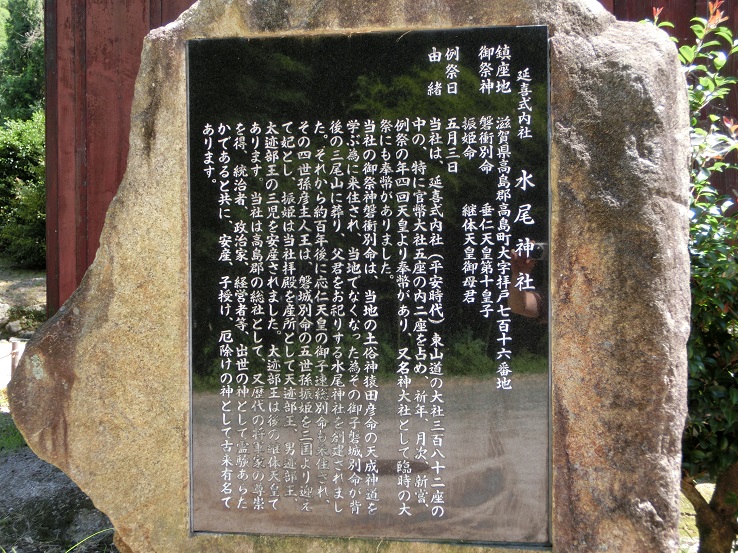 延喜式内社 水尾神社
鎮座地 滋賀県高島郡高島町大字拝戸七百十六番地
御祭神 磐衝別命 垂仁天皇第十皇子
振姫命 継体天皇御母君
例祭日 五月三日
由緒 当社は、延喜式内社(平安時代)東山道の大社三百八十二座の
中の、特に官幣大社五座の内二座を占め、祈年、月次、新嘗、
例祭の年四回天皇より奉幣があり、又名神大社として臨時の大
祭にも奉幣がありました。
当社の御祭神磐衝別命は、当地の土俗神猿田彦命の天成神道を
学ぶ為に来住され、当地でなくなった為その御子磐城別命が背
後の三尾山に葬り、父君をお祀りする水尾神社を創建されまし
た。それから約百年後に応仁天皇の御子速総別命も来住され、
その四世孫彦主人王は、磐城別命の五世孫振姫を三国より迎え
て妃とし、振姫は当社拝殿を産所として天迹部王、男迹部王、
太迹部王の三児を安産されました。太迹部王は後の継体天皇で
あります。当社は高島郡の総社として、又歴代の将軍家の尊崇
を得、統治者、政治家、経営者等、出世の神として霊験あらた
かであると共に、安産、子授け、厄除けの神として古来有名で
あります。